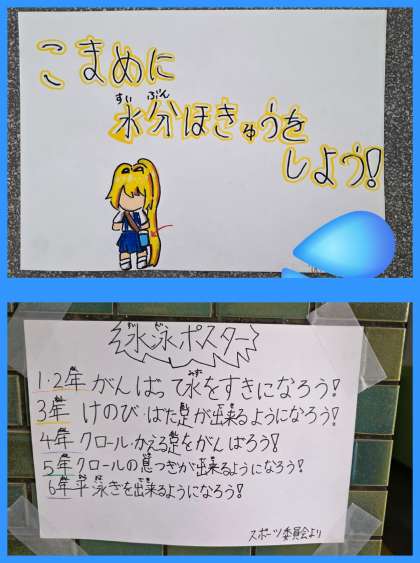 こまめに
水分ほきゅうを
しよう!
水泳ポスター
1・2年 がんばって水をすきになろう!
3年 けのび・ばた足が出来るようになろう!
4年 クロール・かえる足をがんばろう!
5年 クロールの息つぎが出来るようになろう!
6年 平泳ぎを出来るようになろう!
スポーツ委員会より